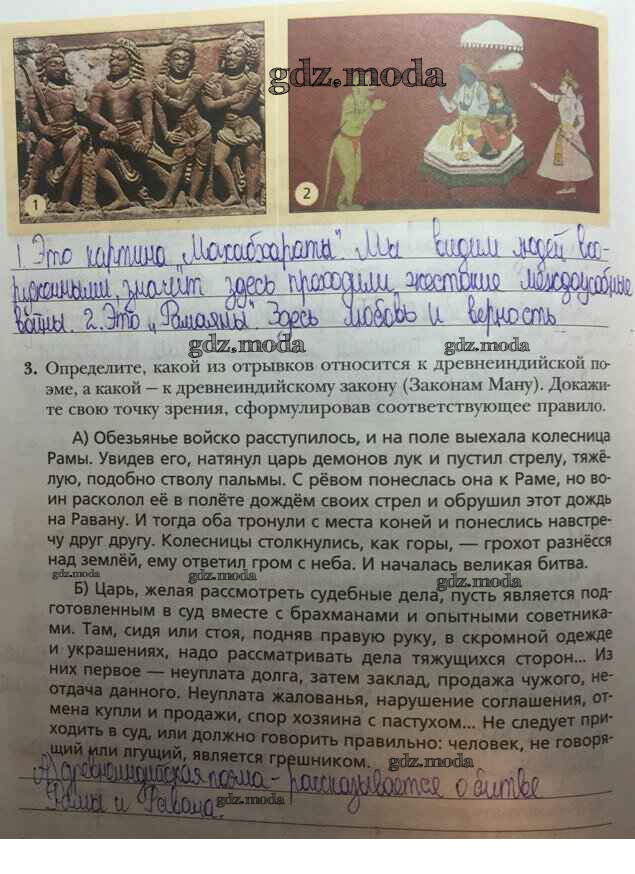 gdz.moda
1
2
1. Это картина „Махабхараты". Мы видим людей воо-
руженными, значит здесь проходили жестокие междоусобные
войны. 2. Это „Рамаяны". Здесь любовь и верность
gdz.moda gdz.moda
3. Определите, какой из отрывков относится к древнеиндийской по-
эме, а какой – к древнеиндийскому закону (Законам Ману). Докажи-
те свою точку зрения, сформулировав соответствующее правило.
А) Обезьянье войско расступилось, и на поле выехала колесница
Рамы. Увидев его, натянул царь демонов лук и пустил стрелу, тяжё-
лую, подобно стволу пальмы. С рёвом понеслась она к Раме, но во-
ин расколол её в полёте дождём своих стрел и обрушил этот дождь
на Равану. И тогда оба тронули с места коней и понеслись навстре-
чу друг другу. Колесницы столкнулись, как горы, — грохот разнёсся
над землёй, ему ответил гром с неба. И началась великая битва.
gdz.moda gdz.moda gdz.moda
Б) Царь, желая рассмотреть судебные дела, пусть является под-
готовленным в суд вместе с брахманами и опытными советника-
ми. Там, сидя или стоя, подняв правую руку, в скромной одежде
и украшениях, надо рассматривать дела тяжущихся сторон... Из
них первое — неуплата долга, затем заклад, продажа чужого, не-
отдача данного. Неуплата жалованья, нарушение соглашения, от-
мена купли и продажи, спор хозяина с пастухом... Не следует при-
ходить в суд, или должно говорить правильно: человек, не говоря-
щий или лгущий, является грешником.
gdz.moda
А) древнеиндийская поэма - рассказывается о битве
Рамы и Равана.
gdz.moda